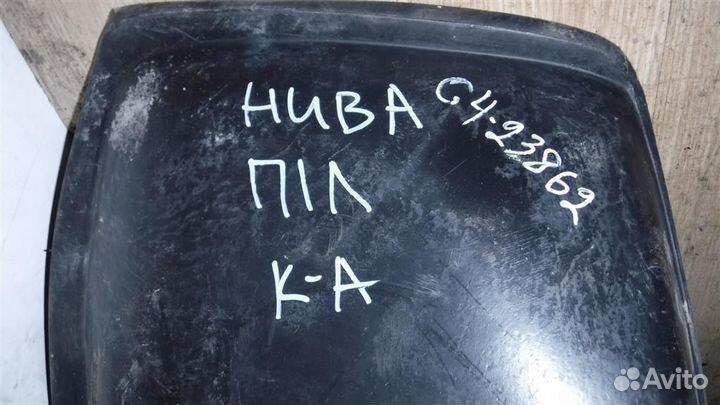 НИВА
П1Л
К-А
С.4-23862
Avito